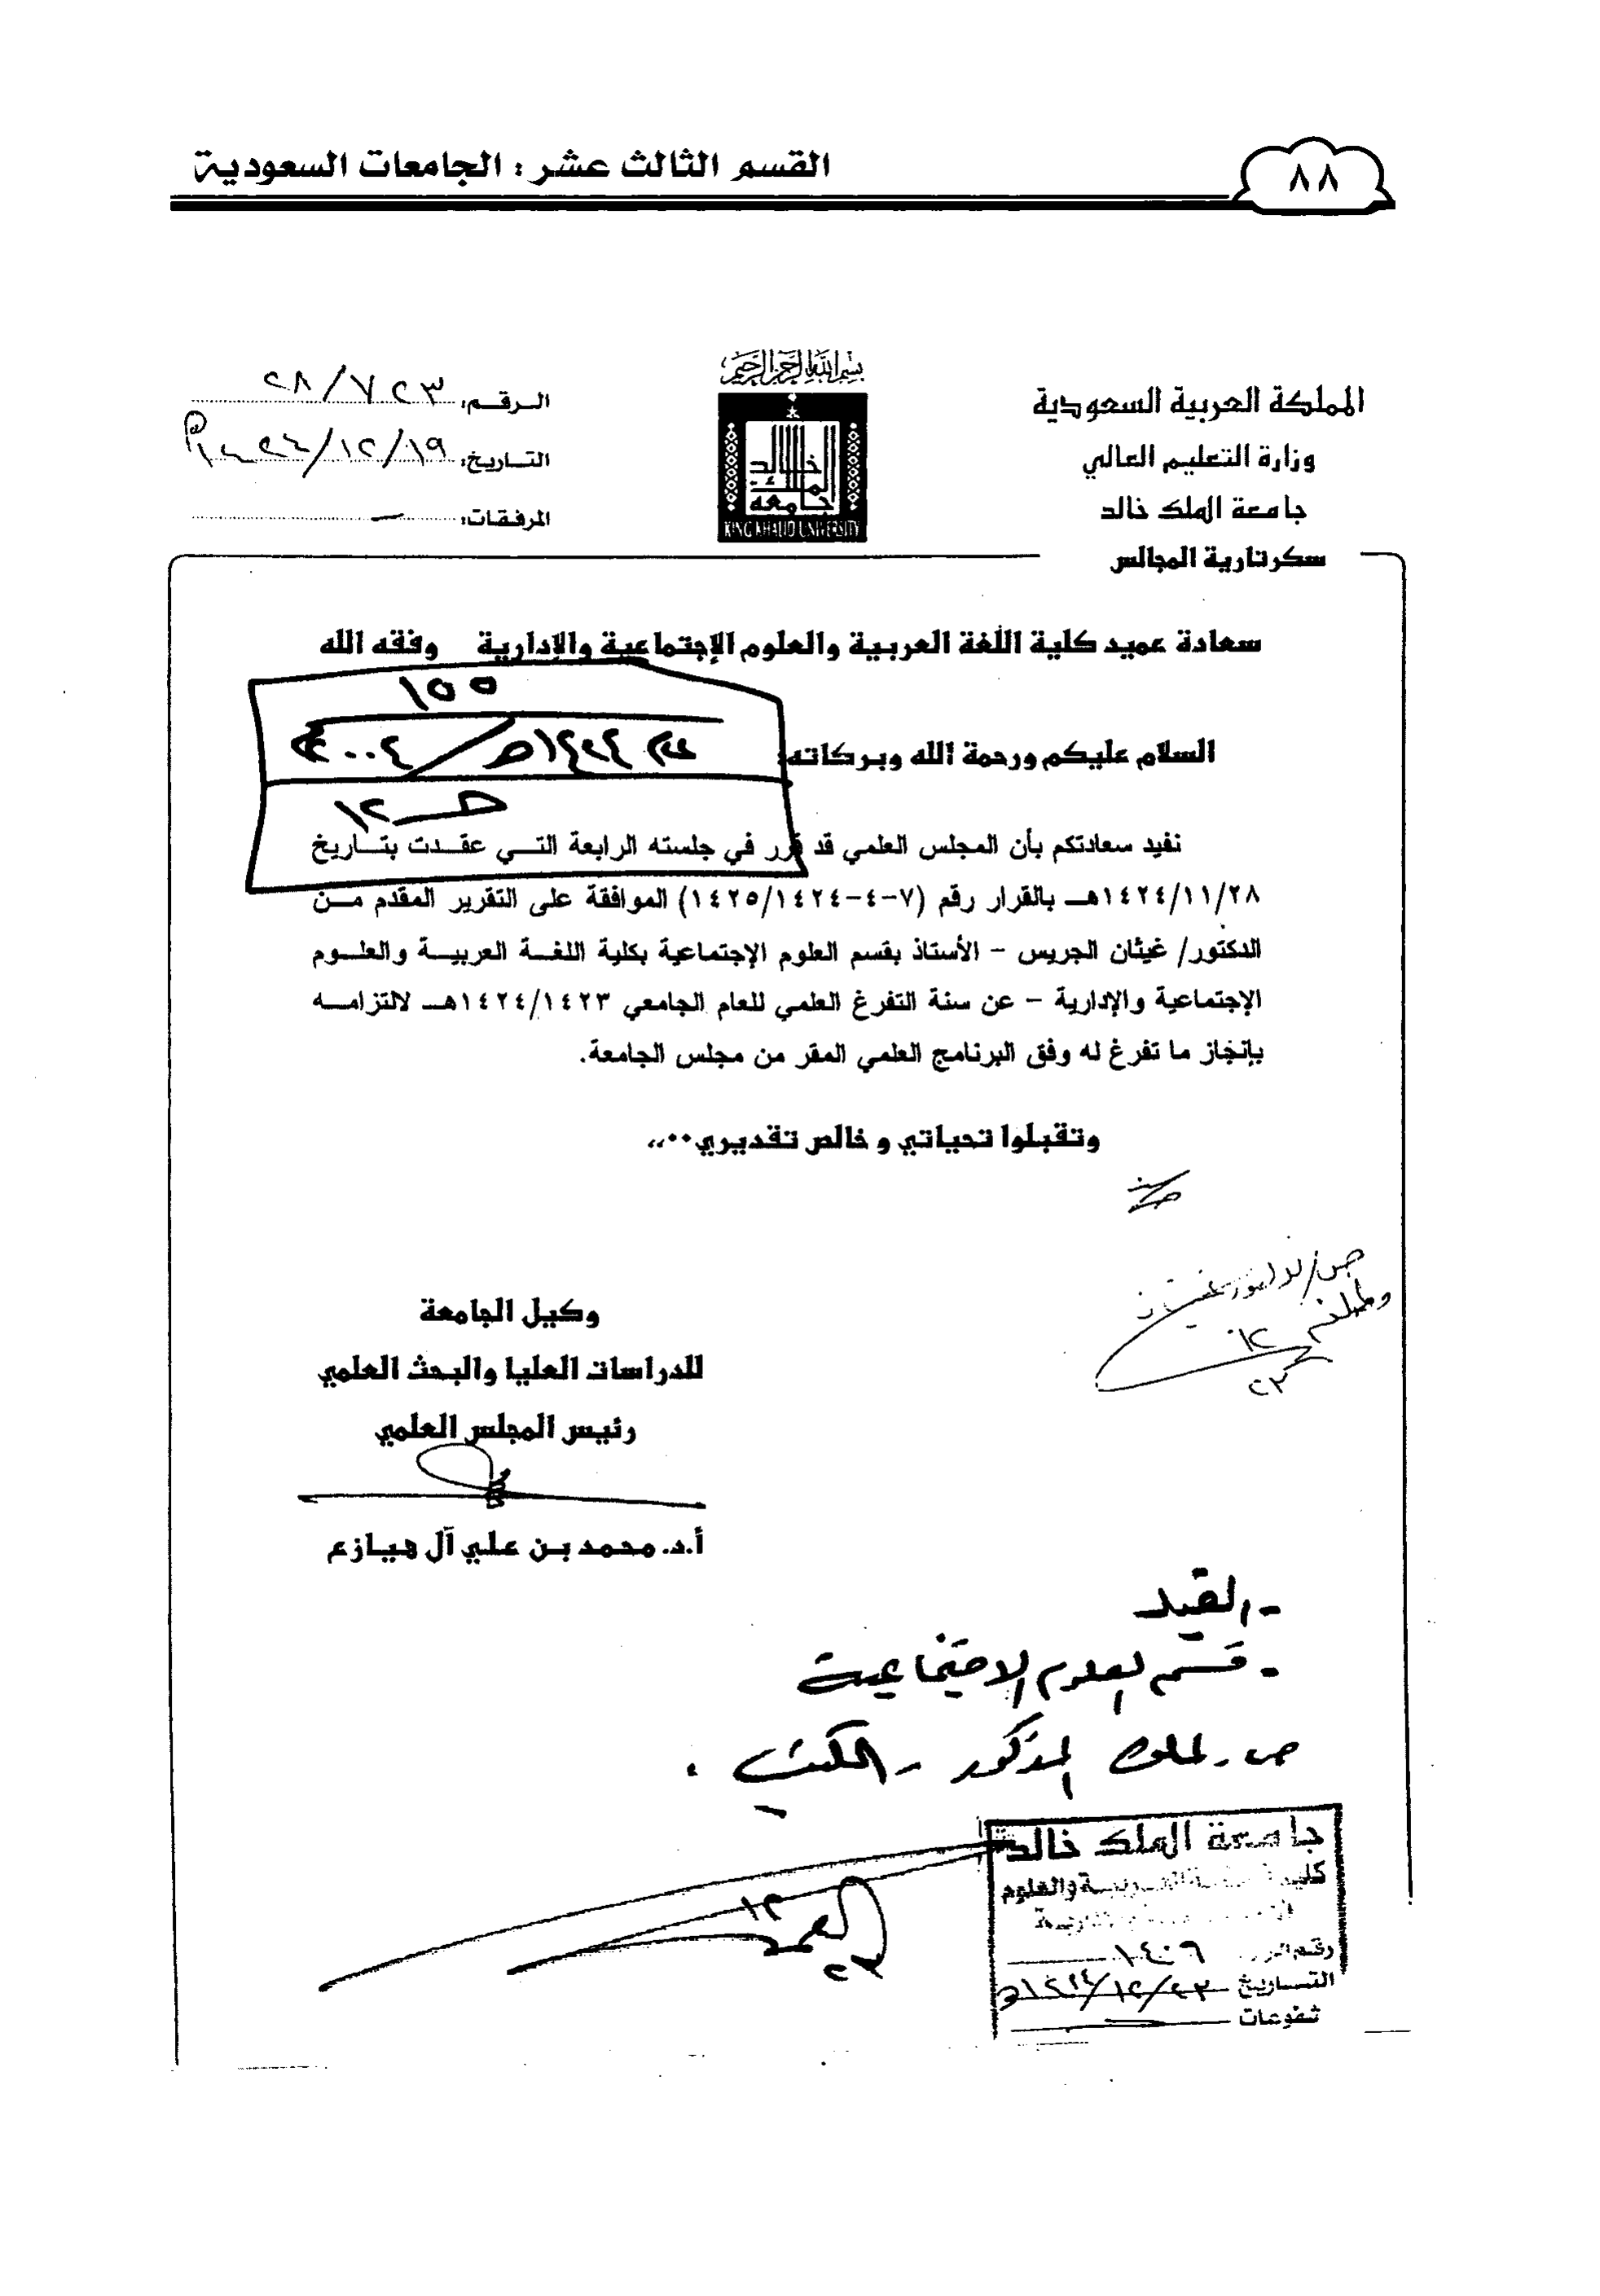 ٨٨
القسم الثالث عشر : الجامعات السعودية
بسم الله الرحمن الرحيم
المملكة العربية السعودية
وزارة التعليم العالي
جامعة الملك خالد
سكرتارية المجالس
جامعة الملك خالد
KING KHALID UNIVERSITY
الرقم: ٢٨/٧٢٣
التاريخ: ١٤٢٤/١٢/١٩هـ
المرفقات: ــ
سعادة عميد كلية اللغة العربية والعلوم الإجتماعية والإدارية وفقه الله
١٥٥
السلام عليكم ورحمة الله وبركاته:
نفيد سعادتكم بأن المجلس العلمي قد قرر في جلسته الرابعة التي عقدت بتاريخ
١٤٢٤/١١/٢٨هـ بالقرار رقم (٧-٤-١٤٢٥/١٤٢٤) الموافقة على التقرير المقدم من
الدكتور/ غيثان الجريس - الأستاذ بقسم العلوم الإجتماعية بكلية اللغة العربية والعلوم
الإجتماعية والإدارية - عن سنة التفرغ العلمي للعام الجامعي ١٤٢٤/١٤٢٣هـ لالتزامه
بإنجاز ما تفرغ له وفق البرنامج العلمي المقر من مجلس الجامعة.
وتقبلوا تحياتي و خالص تقديري،،..
وكيل الجامعة
للدراسات العليا والبحث العلمي
رئيس المجلس العلمي
أ.د. محمد بن علي آل هيازع
- القيد
- قسم العلوم الاجتماعية
ص. لملف المذكور - المكتب .
جامعة الملك خالد
العربية والعلوم
١٤٠٦
التاريخ